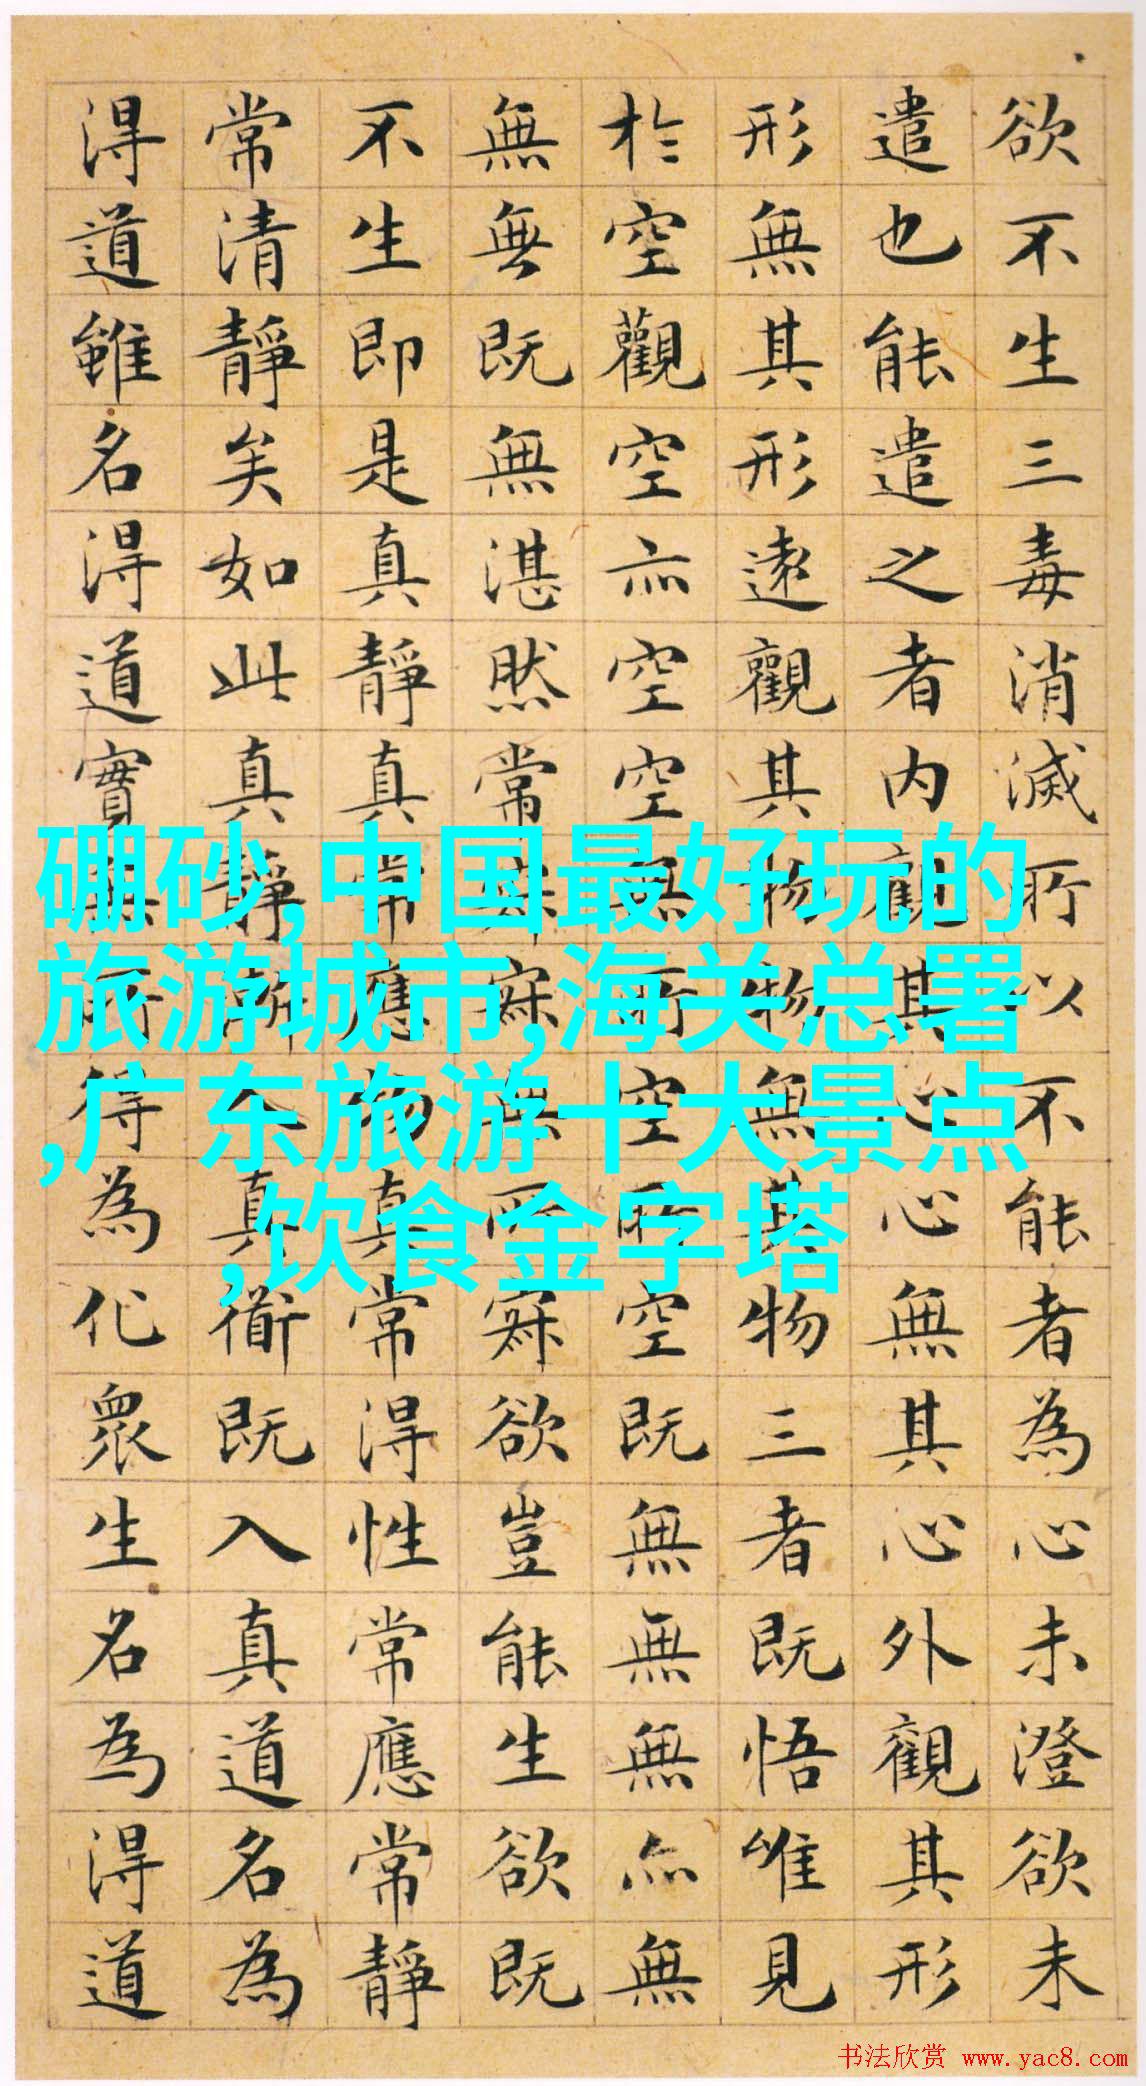 欲不生三毒消滅所以不能者為心未澄欲未
遣也能遣之者内觀其心心無其心外觀其形
形無其形遠觀其物物無其物三者既悟唯見
於空觀空亦空空無所空所空既無無無亦無
無無既無湛然常寂寂無所寂欲豈能生欲既
不生即是真靜真常應物真常得性常應常靜
常清靜矣如此真靜漸入真衜既入真道名為
得道雖名得道實無所得為化眾生名為得道
硼砂,中国最好玩的
旅游城市,海关总署
,广东旅游十大景点
,饮食金字塔
书法欣赏 www.yac8.com